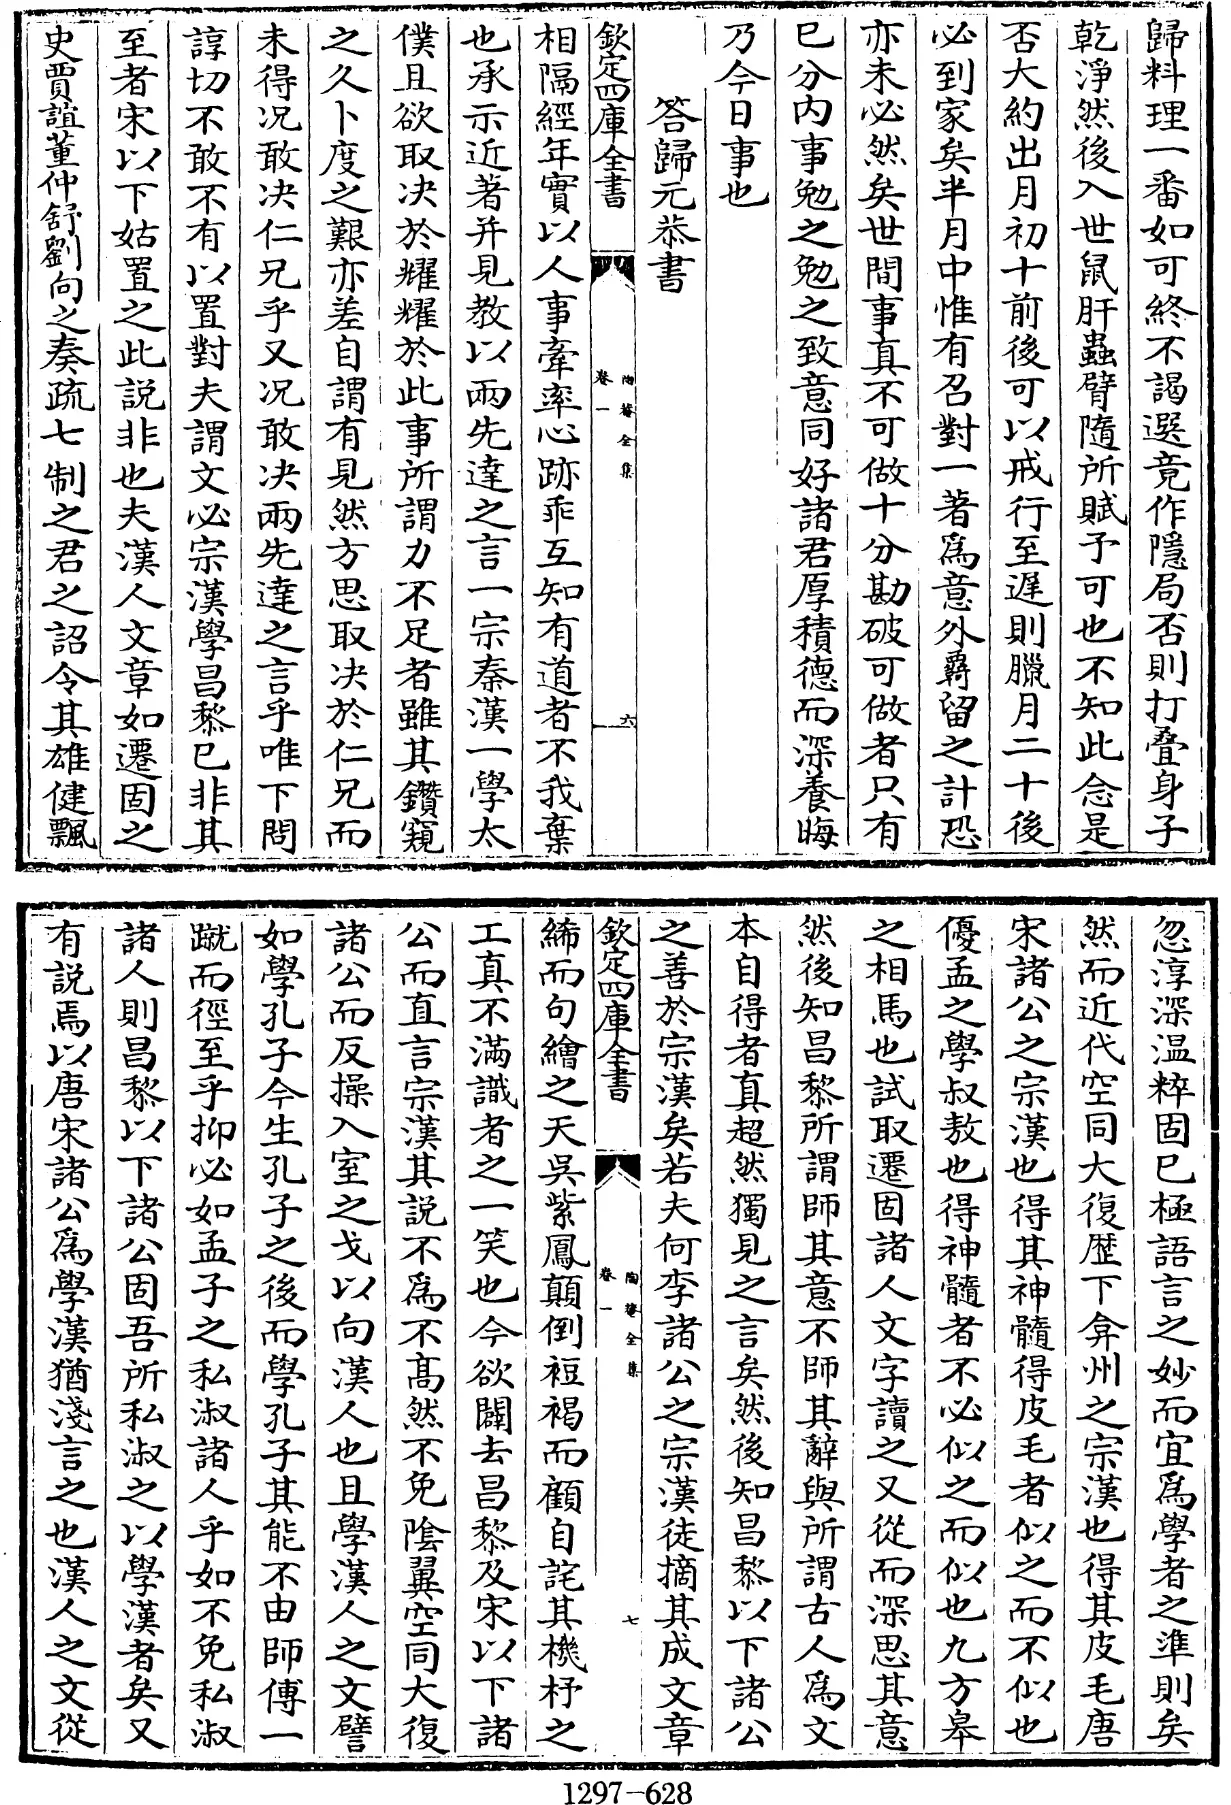 歸料理一番如可終不謁選竟作隱局否則打疊身子
乾淨然後入世鼠肝蟲臂隨所賦予可也不知此念是
否大約出月初十前後可以戒行至遲則臘月二十後
必到家矣半月中惟有召對一著為意外羈留之計恐
亦未必然矣世間事真不可做十分勘破可做者只有
已分内事勉之勉之致意同好諸君厚積德而深養晦
乃今日事也
答歸元恭書
欽定四庫全書
陶菴全集
卷一
六
相隔經年實以人事牽率心跡乖互知有道者不我棄
也承示近著并見教以兩先達之言一宗秦漢一學太
僕且欲取决於耀耀於此事所謂力不足者雖其鑽窺
之久卜度之艱亦差自謂有見然方思取决於仁兄而
未得况敢决仁兄乎又况敢决兩先達之言乎唯下問
諄切不敢不有以置對夫謂文必宗漢學昌黎已非其
至者宋以下姑置之此説非也夫漢人文章如遷固之
史賈誼董仲舒劉向之奏疏七制之君之詔令其雄健飄
忽淳深温粹固已極語言之妙而宜為學者之準則矣
然而近代空同大復歴下弇州之宗漢也得其皮毛唐
宋諸公之宗漢也得其神髓得皮毛者似之而不似也
優孟之學叔敖也得神髓者不必似之而似也九方皋
之相馬也試取遷固諸人文字讀之又從而深思其意
然後知昌黎所謂師其意不師其辭與所謂古人為文
本自得者真超然獨見之言矣然後知昌黎以下諸公
之善於宗漢矣若夫何李諸公之宗漢徒摘其成文章
欽定四庫全書
陶菴全集
卷一
七
絺而句繪之天吳紫鳳顛倒裋褐而顧自詫其機杼之
工真不滿識者之一笑也今欲闢去昌黎及宋以下諸
公而直言宗漢其説不為不高然不免陰翼空同大復
諸公而反操入室之戈以向漢人也且學漢人之文譬
如學孔子今生孔子之後而學孔子其能不由師傳一
蹴而徑至乎抑必如孟子之私淑諸人乎如不免私淑
諸人則昌黎以下諸公固吾所私淑之以學漢者矣又
有説焉以唐宋諸公為學漢猶淺言之也漢人之文從
1297-628